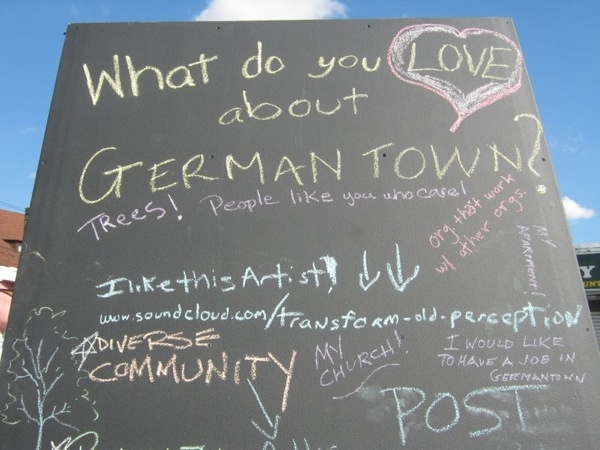 What do you LOVE
about
GERMAN TOWN?
TREES! People like you who care!
org. that work
w/ other orgs.
MY
APARTMENT!
I like this Artist!
www.soundcloud.com/transform-old-perception
DIVERSE
COMMUNITY
MY
CHURCH!
I WOULD LIKE
TO HAVE A JOB IN
GERMANTOWN
POST